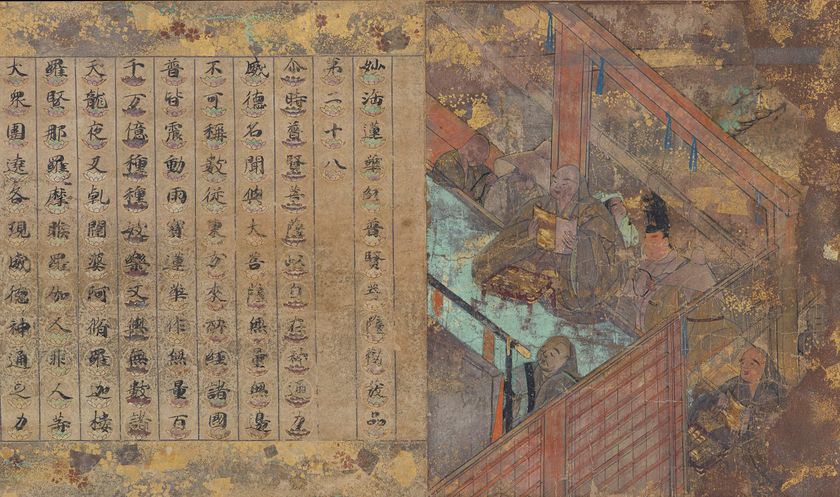 妙法蓮華經普賢菩薩勸發品
第二十八
尒時普賢菩薩以自在神通力
威德名聞與大菩薩無量無邊
不可稱數從東方來所經諸國
普皆震動雨寶蓮華作無量百
千万億種種妓樂又與無數諸
天龍夜叉乹闥婆阿脩羅迦樓
羅緊那羅摩睺羅伽人非人等
大衆圍遶各現威德神通之力